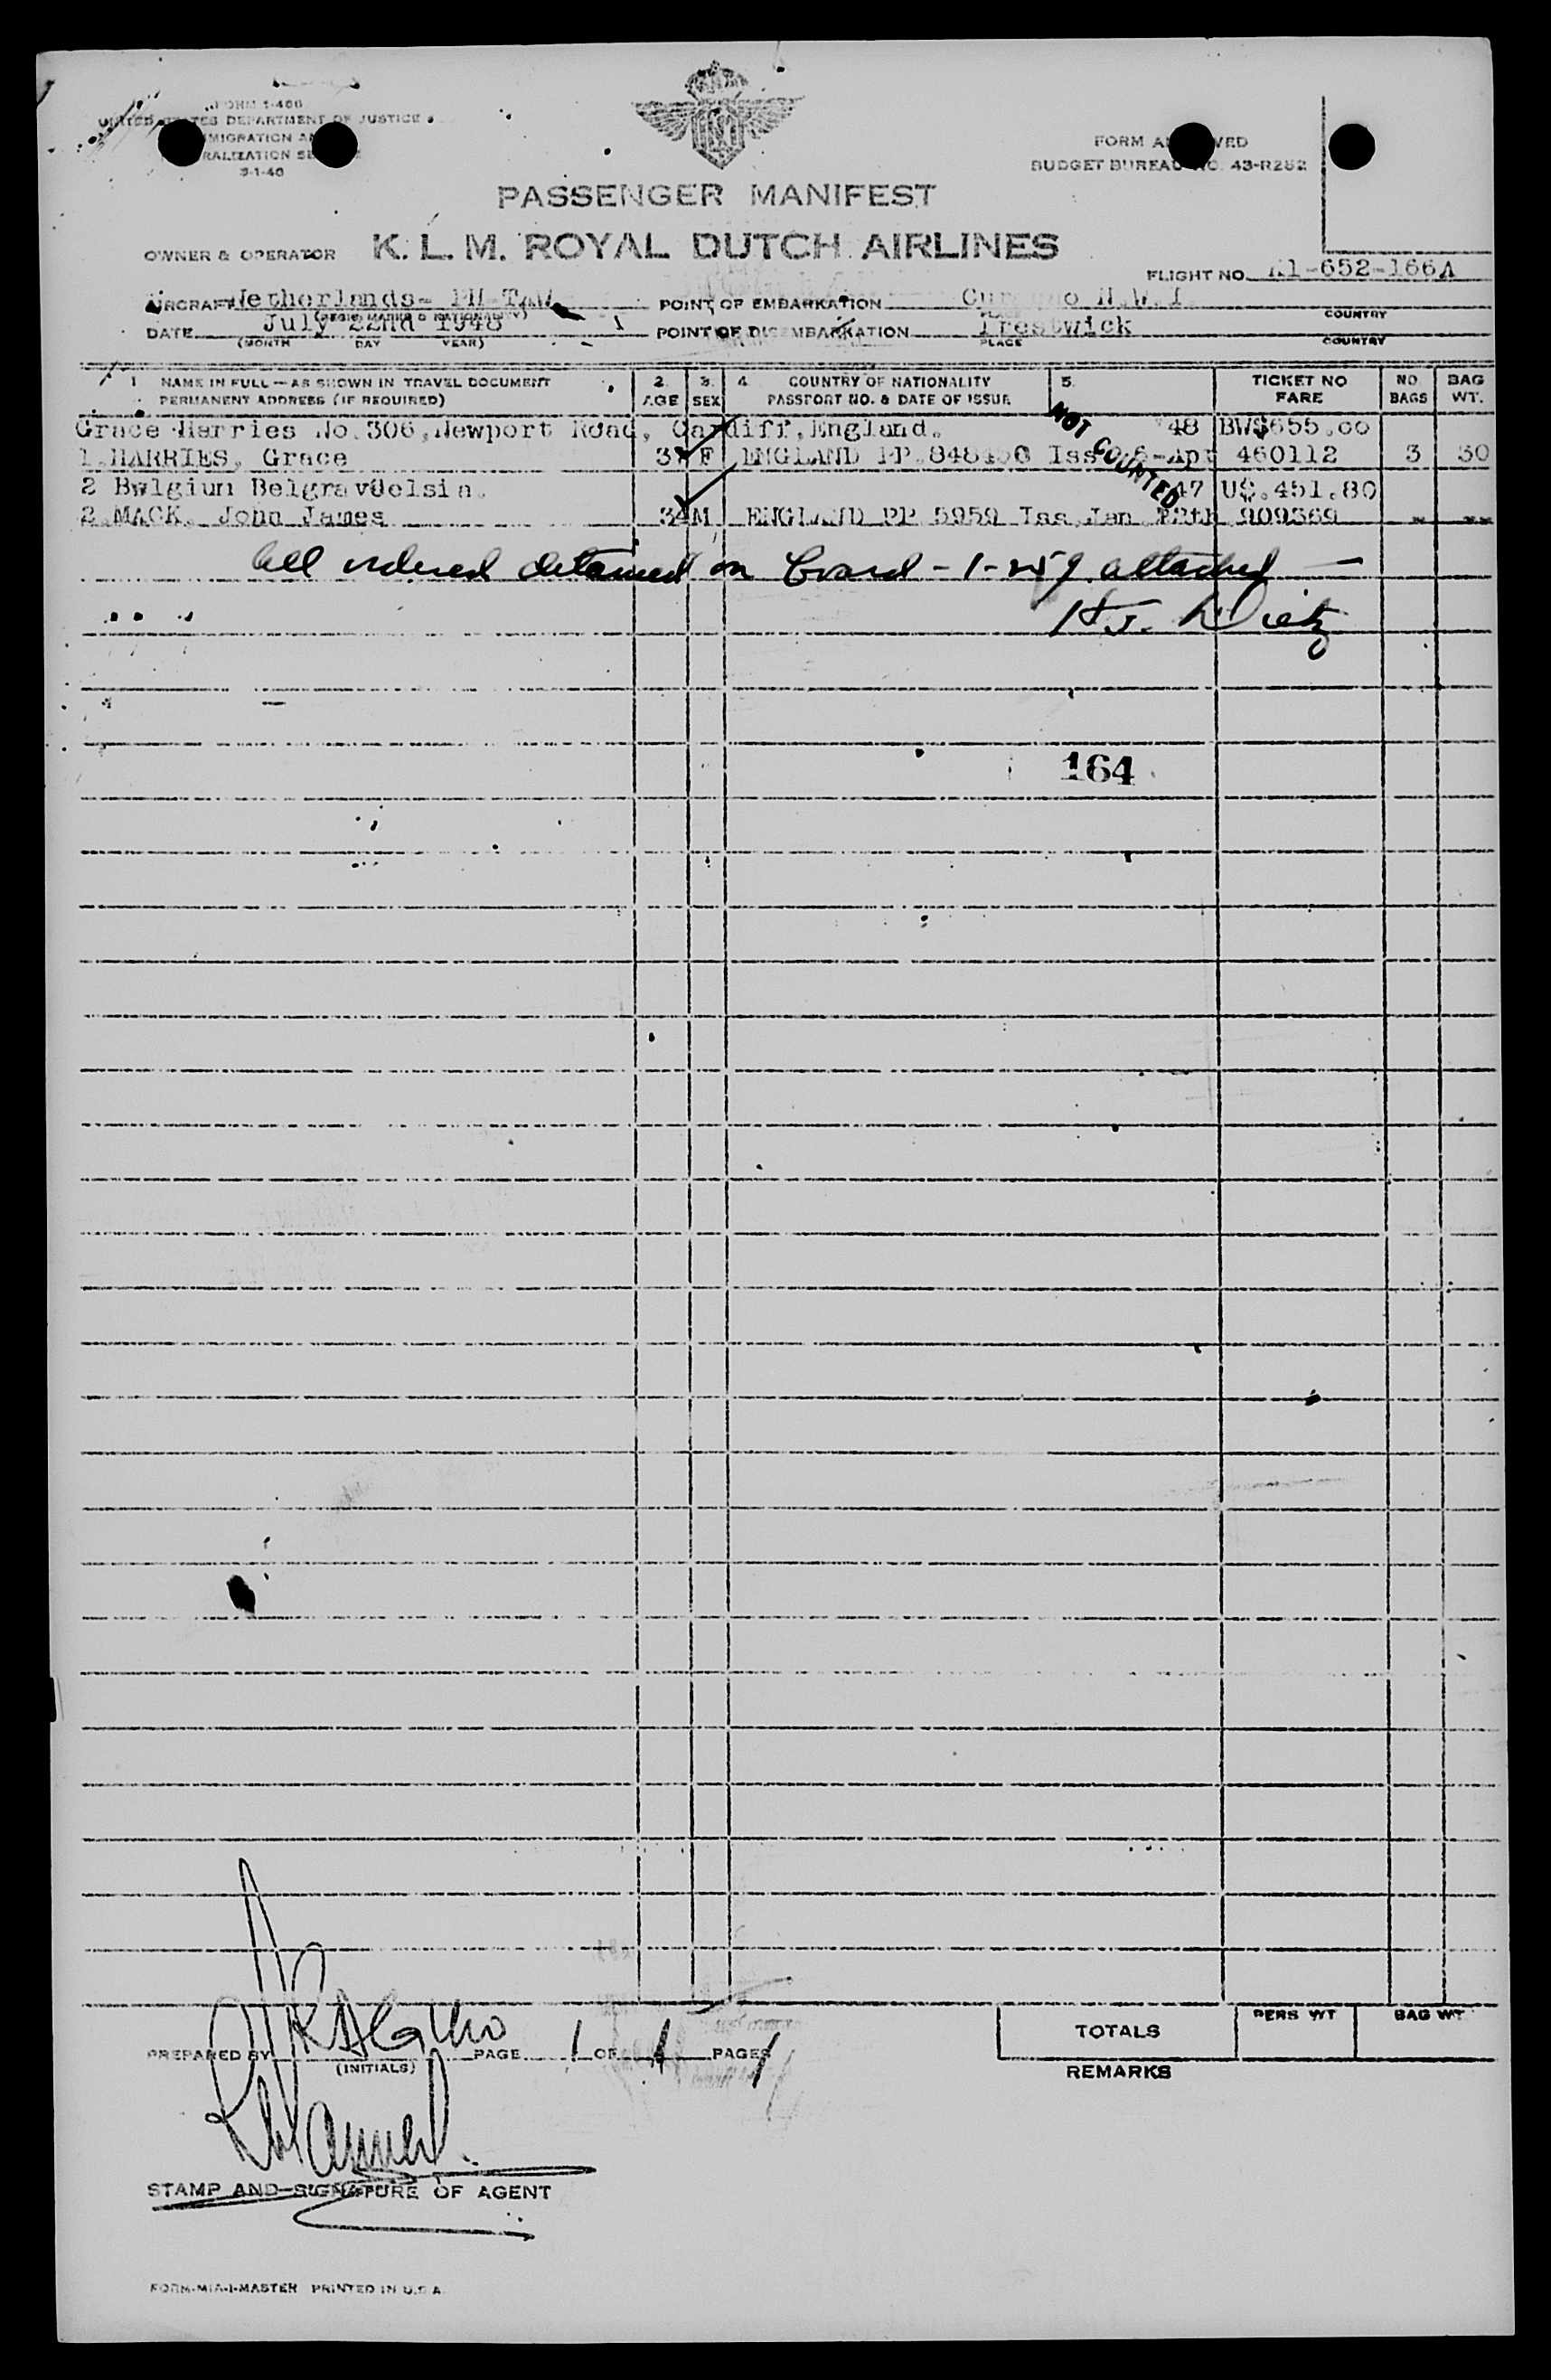 FORM I-400
UNITED STATES DEPARTMENT OF JUSTICE
IMMIGRATION AND
NATURALIZATION SERVICE
FORM APPROVED
BUDGET BUREAU NO. 43-R252
PASSENGER MANIFEST
OWNER & OPERATOR K. L. M. ROYAL DUTCH AIRLINES
FLIGHT NO. Kl-652-166A
AIRCRAFT Netherlands- PH-TAW POINT OF EMBARKATION Curacao N.W.I.
(REGIS. MARKS & NATIONALITY) PLACE COUNTRY
DATE July 22nd 1948 POINT OF DISEMBARKATION Prestwick
(MONTH DAY YEAR) PLACE COUNTRY
1 NAME IN FULL — AS SHOWN IN TRAVEL DOCUMENT 2. 3. 4 COUNTRY OF NATIONALITY 5. TICKET NO NO BAG
PERMANENT ADDRESS (IF REQUIRED) AGE SEX PASSPORT NO. & DATE OF ISSUE FARE BAGS WT.
NOT COUNTED
Grace Harries No.306,Newport Road, Cardiff,England. 48 BW$655.oo
1.HARRIES, Grace F ENGLAND PP Iss 6-Apr 460112 3 30
2 Bwlgiun 47 U$.451.80
2.MACK, John James 34 M ENGLAND PP 5959 Iss Jan 909369 - --
all ordered detained on board - 1-259 attached —
H.J. Dietz
164
PREPARED BY PAGE 1 OF 1 PAGES
(INITIALS)
TOTALS PERS WT BAG WT
REMARKS
STAMP AND SIGNATURE OF AGENT
FORM-MIA-1-MASTER PRINTED IN U.S.A.